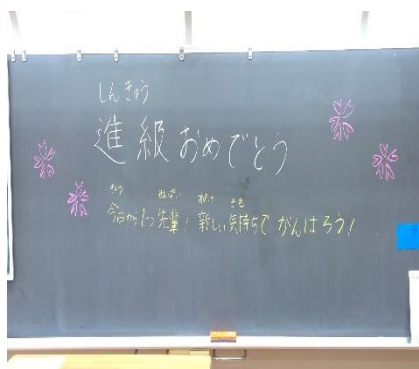 しんきゅう
進級おめでとう
きょう せんぱい あたら きも
今日から1つ先輩！新しい気持ちでがんばろう！